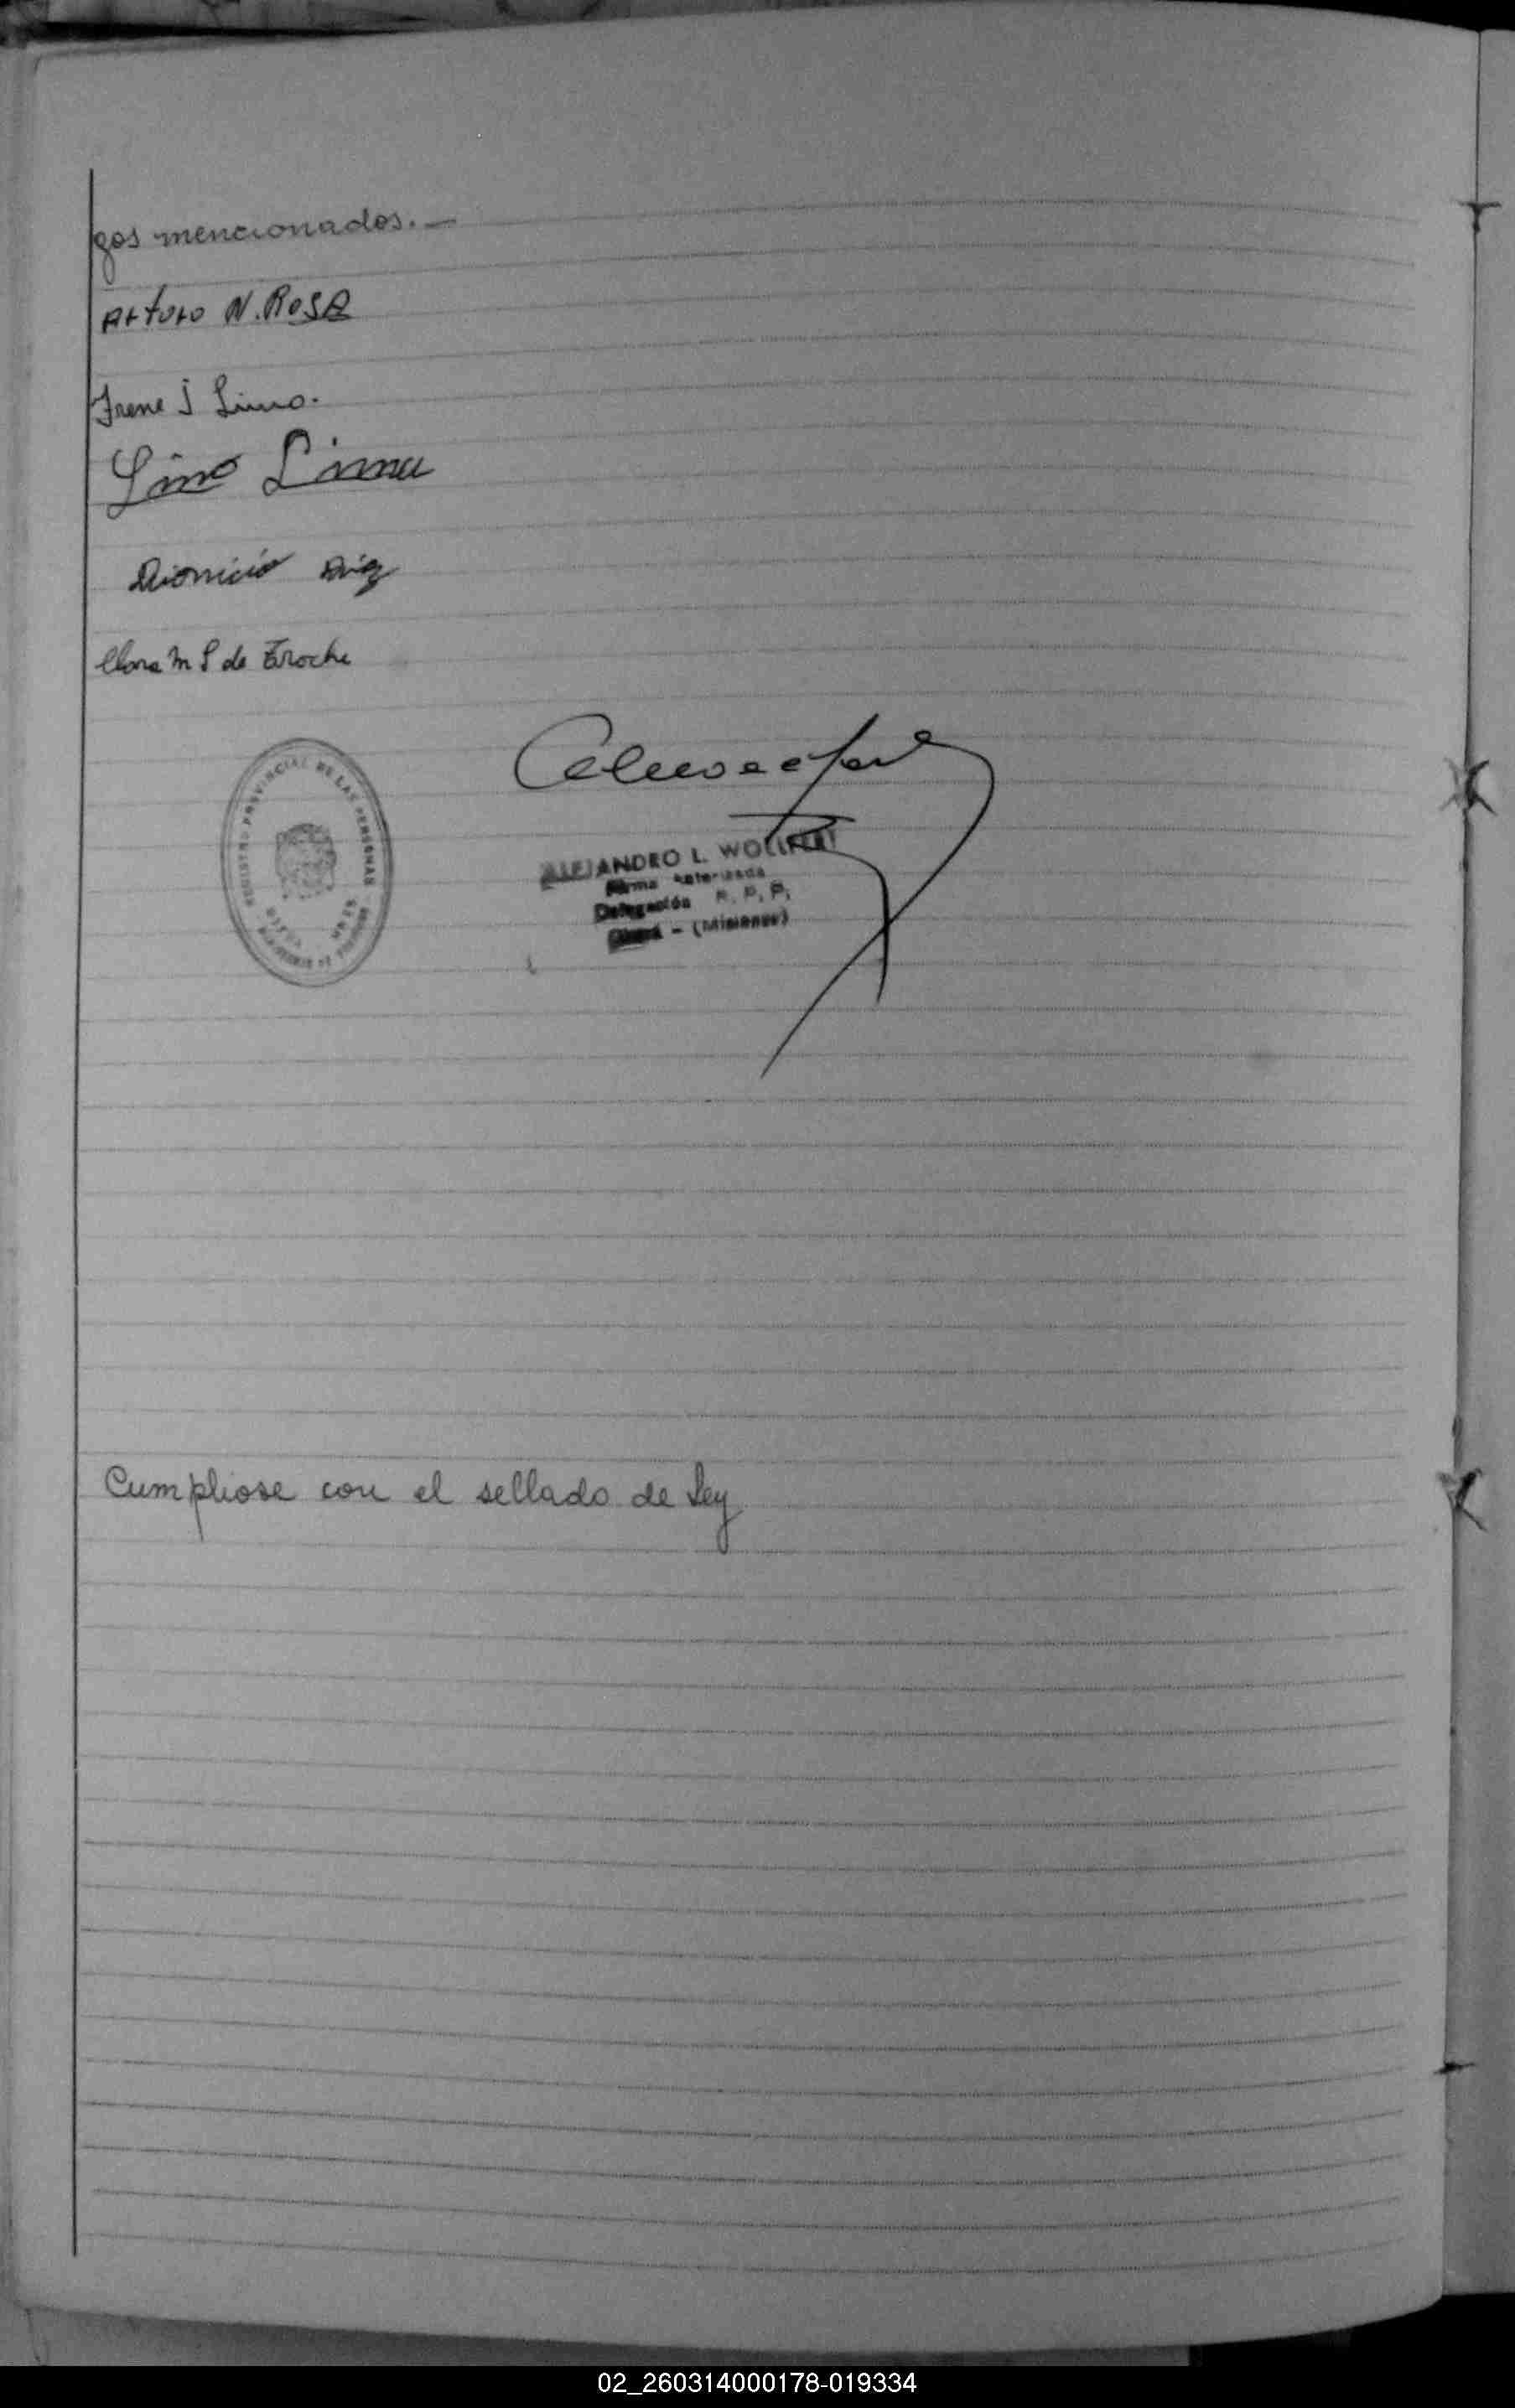 gos mencionados.—
Arturo N. Rosa
Irene J Limo.
Lino Lima
Dionicio
Clara M S de
REGISTRO PROVINCIAL DE LAS PERSONAS
ALEJANDRO L.
Firma Autorizada
Delegación R. P. P.
- (Misiones)
Cumpliose con el sellado de Ley
02_260314000178-019334